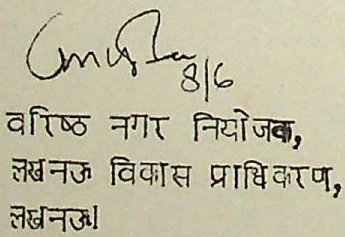 8/6
वरिष्ठ नगर नियोजक,
लखनऊ विकास प्राधिकरण,
लखनऊ।